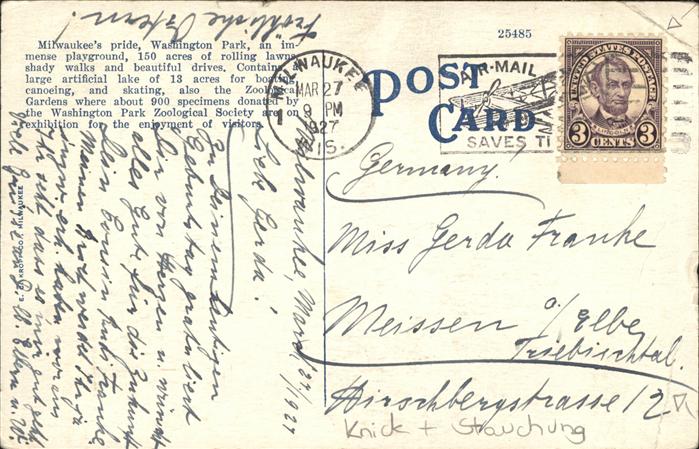 Fröhliche Ostern!
Milwaukee's pride, Washington Park, an im-
mense playground, 150 acres of rolling lawns,
shady walks and beautiful drives. Contains a
large artificial lake of 13 acres for boating,
canoeing, and skating, also the Zoological
Gardens where about 900 specimens donated by
the Washington Park Zoological Society are on
exhibition for the enjoyment of visitors.
E. C. KROPP CO., MILWAUKEE
25485
POST
CARD
MILWAUKEE
MAR 27
9 PM
1927
WIS.
AIR-MAIL
SAVES TIME
UNITED STATES POSTAGE
LINCOLN
3 CENTS 3
Milwaukee, March 27/1927
Lieb Gerda!
Zu Deinem heutigen
Geburtstag gratuliert
Dir von Herzen u. wünscht
alles Gute für die Zukunft
Dein Cousin
Meinen Brief werdet Ihr ja
haben
Ihr
Viele Grüsse a. d. Eltern u.
Germany.
Miss Gerda Franke
Meissen a/Elbe
Triebischtal.
Hirschbergstrasse 12
Knick + Stauchung